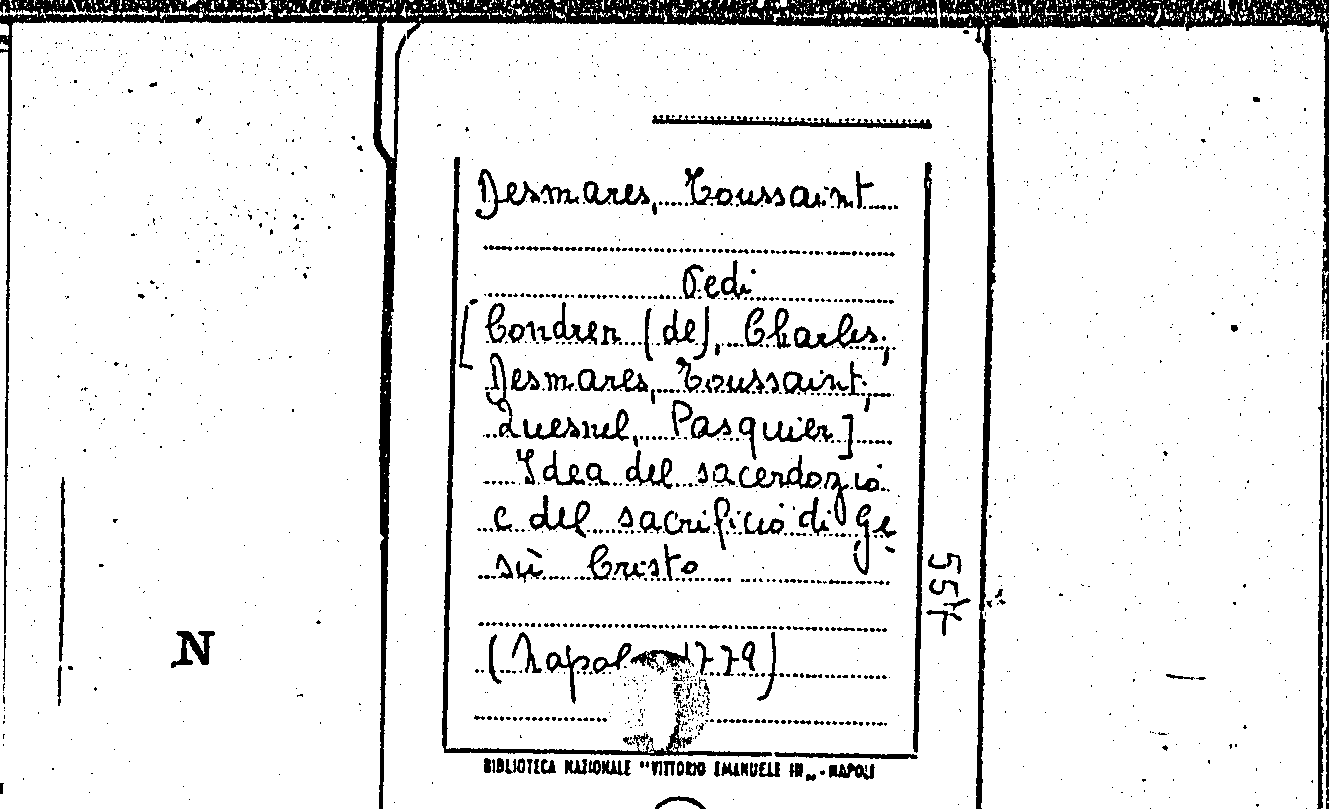 Desmares, Toussaint
Vedi
[Condren (de), Charles;
Desmares, Toussaint;
Quesnel, Pasquier]
Idea del sacerdozio
e del sacrificio di Ge
sù Cristo
(Napoli 1779)
BIBLIOTECA NAZIONALE "VITTORIO EMANUELE III„ - NAPOLI
N